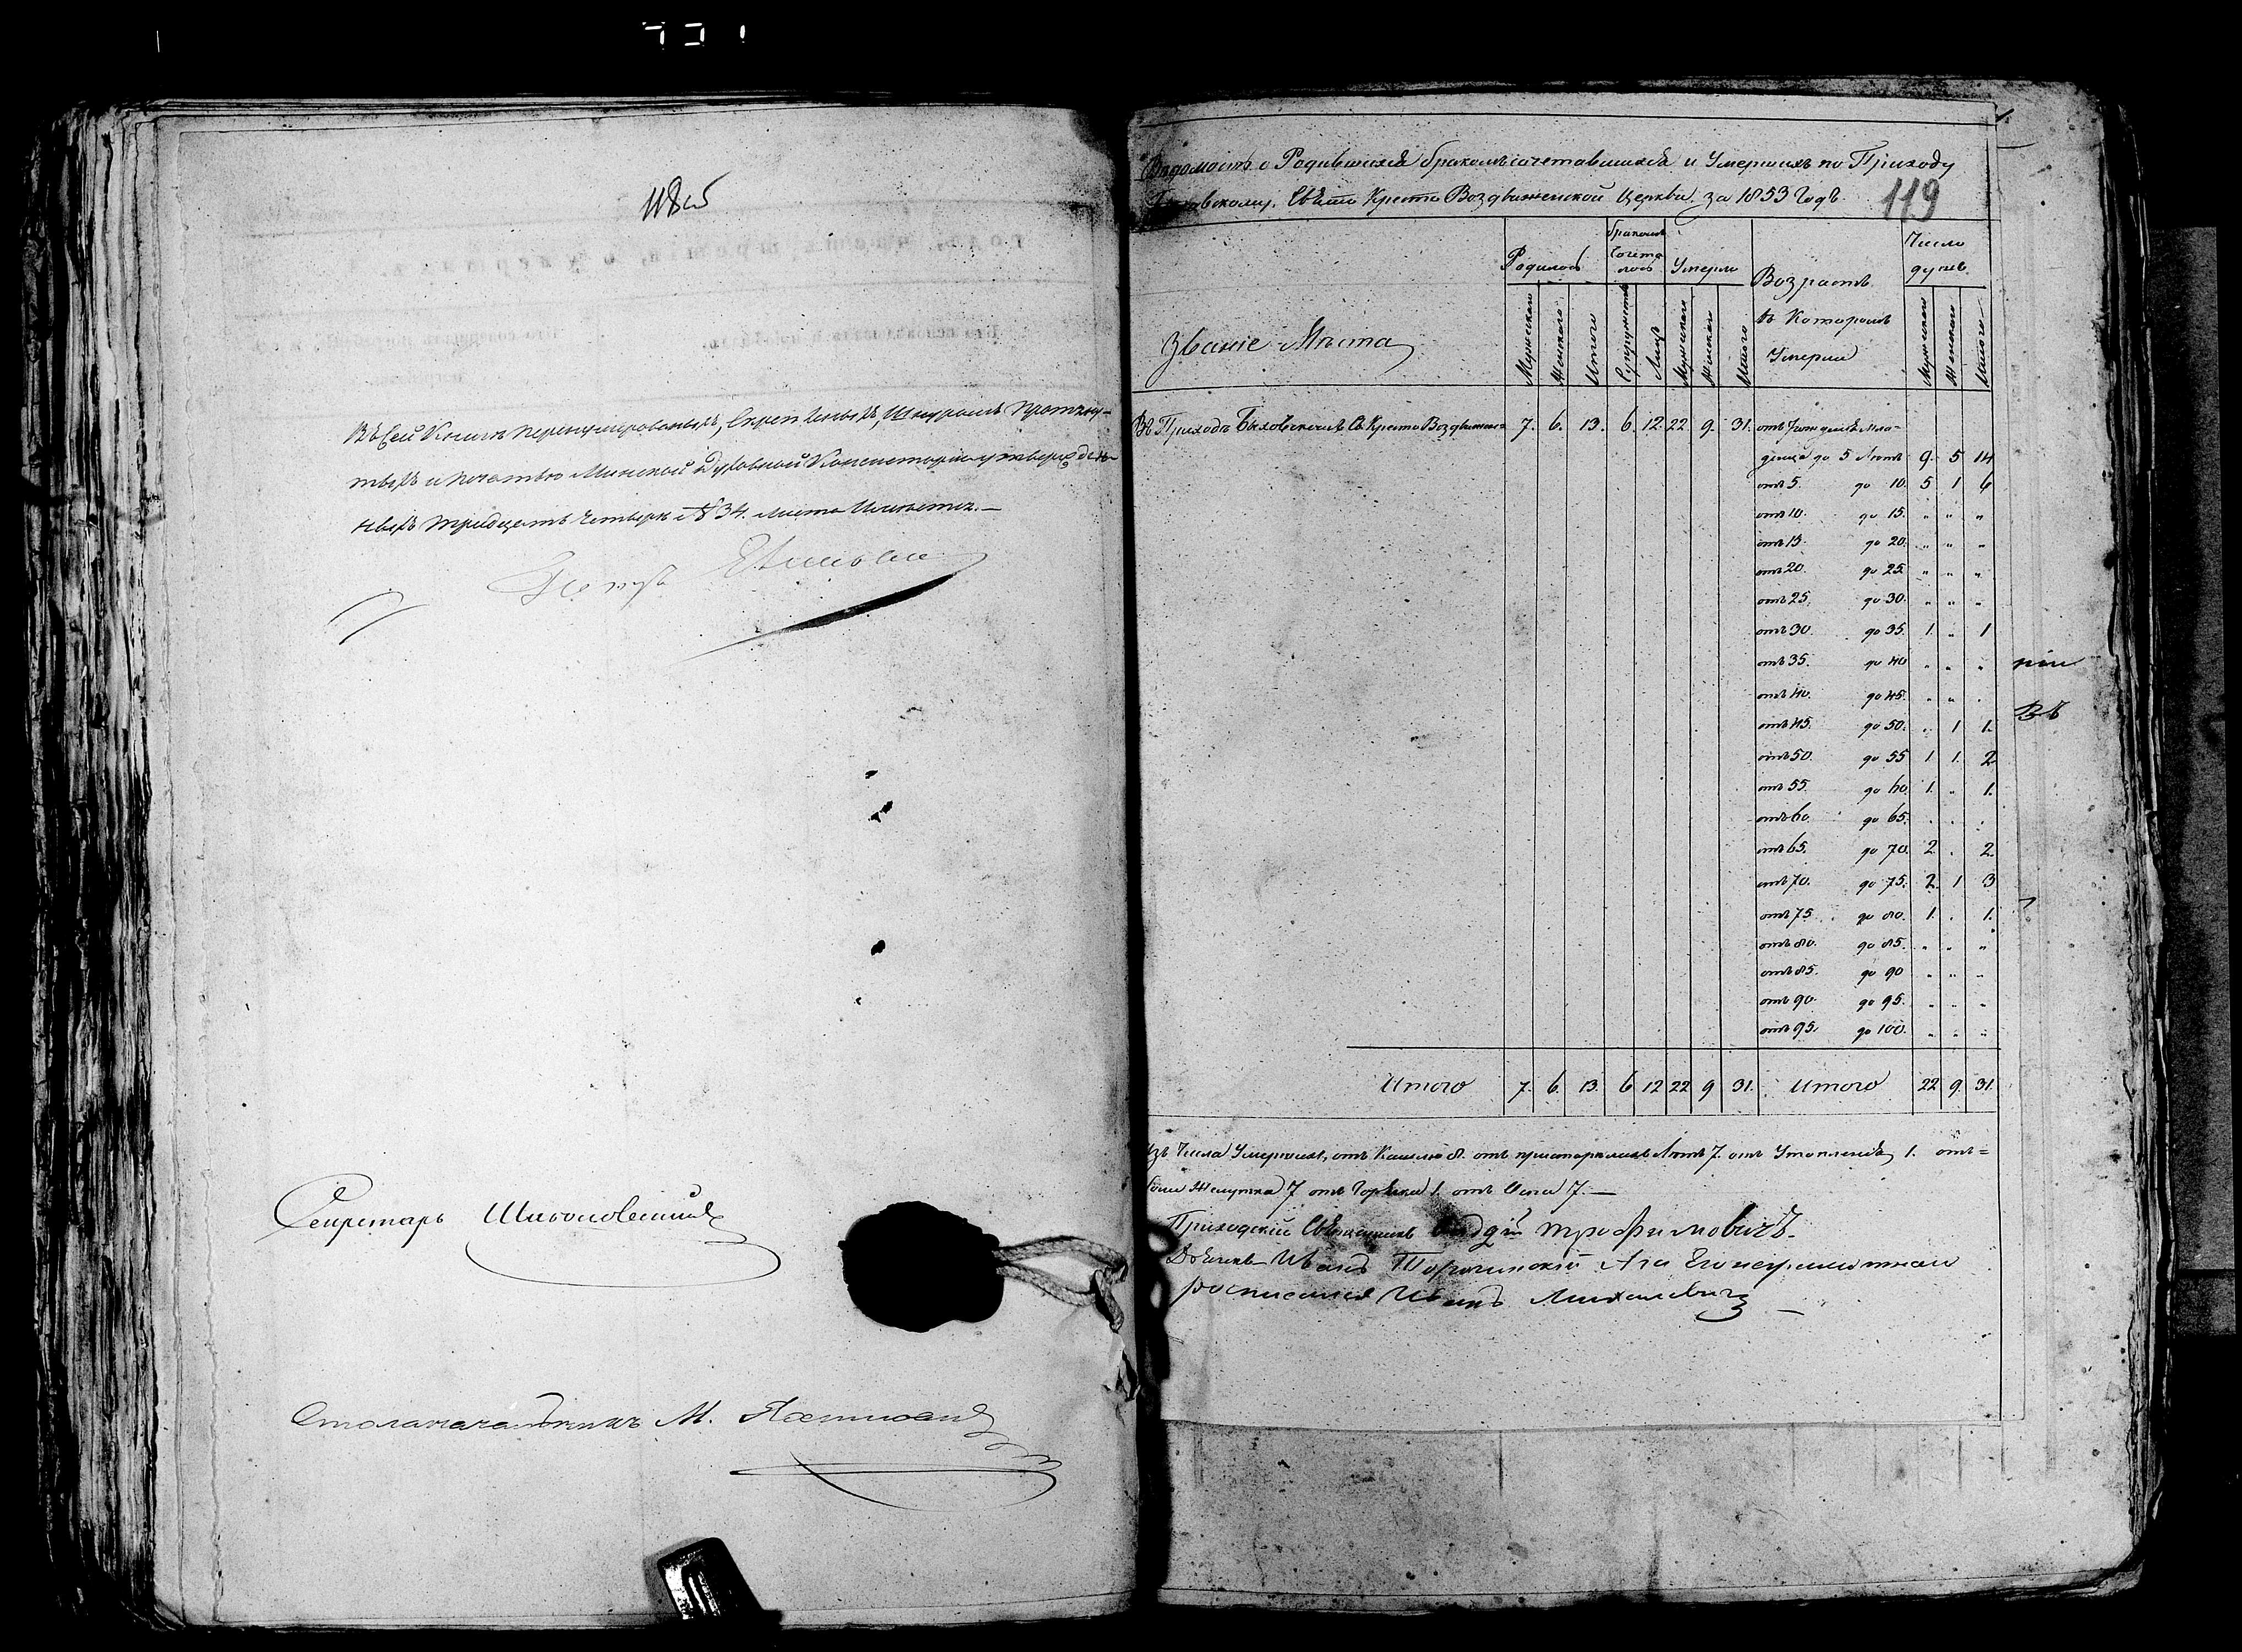 118об
Въ Сей Книгѣ перенумерованныхъ, Скрепленныхъ, Шнуромъ Протяну-
тыхъ и печатью Минской Духовной Консисторіи утвержден-
ныхъ тридцать четыре № 34. листа Имѣется. —
Секретарь
Столоначальникъ М.
1.
Вѣдомость о Родившихся бракомъ сочетавшихся и Умершихъ по Приходу
Свято Кресто Воздвиженской Церкви за 1853 Годъ.
119
Званіе Мѣста
Родилось
бракомъ Сочета лось
Умерло
Возрастъ въ Которомъ Умерли
Число душъ
Мужескаго Женскаго Итого Супружествъ Лицъ Мужескаго Женскаго Итого Мужескаго Женскаго Итого
Въ Приходѣ Быховскомъ С. Кресто Воздвижен= 7. 6. 13. 6. 12. 22 9. 31. отъ Рожденія Мла=
денца до 5 Лѣтъ 9. 5 14
отъ 5. до 10. 5 1 6
отъ 10. до 15. " " "
отъ 15. до 20. " " "
отъ 20. до 25 " " "
отъ 25. до 30. " " "
отъ 30. до 35. 1. " 1
отъ 35. до 40 " " "
рии
отъ 40. до 45. " " "
отъ 45. до 50. " 1 1.
Въ
отъ 50. до 55 1 1. 2
отъ 55. до 60 1. " 1.
отъ 60. до 65. " " "
отъ 65. до 70. 2. " 2.
отъ 70. до 75. 2. 1 3
отъ 75 до 80. 1. " 1.
отъ 80. до 85. " " "
отъ 85. до 90 " " "
отъ 90. до 95. " " "
отъ 95. до 100. " " "
Итого 7. 6. 13. 6 12 22 9 31. Итого 22 9. 31.
Изъ Числа Умершихъ, отъ Кашлю 8. отъ престарелыхъ Лѣтъ 7. отъ Утопленія 1. отъ=
боли Желутка 7 отъ Горячки 1. отъ Оспы 7. —
Приходскій Священникъ Трофимовичъ.
Дьячекъ Иванъ А за Его неграмотнаго
росписался Иванъ Михалевичъ —